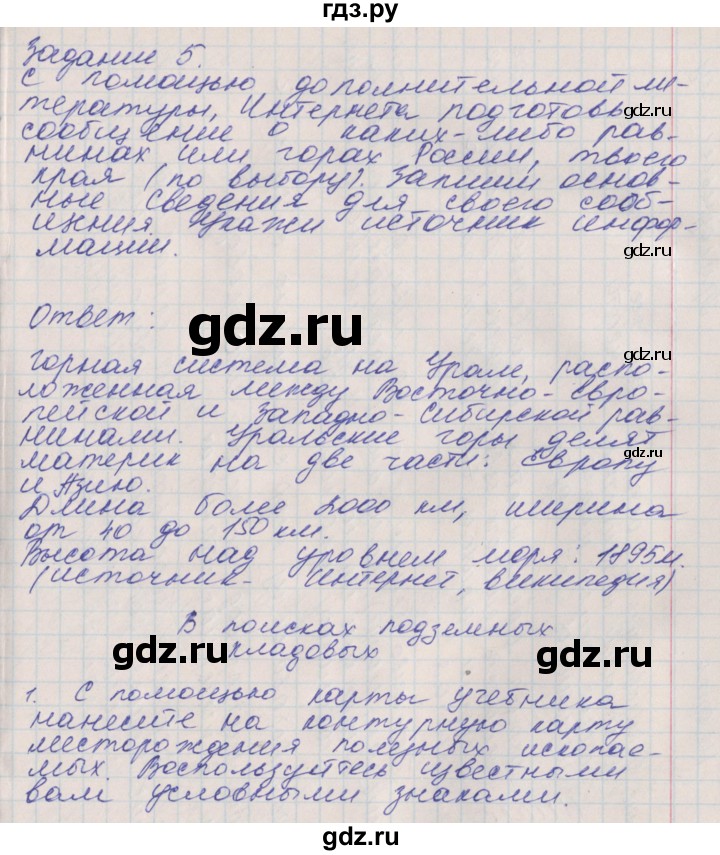 гдз.ру
Задание 5.
С помощью дополнительной ли-
тературы, Интернета подготовь
сообщение о каких-либо рав-
нинах или горах России, твоего
края (по выбору). Запиши основ-
ные сведения для своего сооб-
щения. Укажи источник инфор-
мации.
Ответ:
горная система на Урале, распо-
ложенная между Восточно-Евро-
пейской и Западно-Сибирской рав-
нинами. Уральские горы делят
материк на две части: Европу
и Азию.
Длина более 2000 км, ширина
от 40 до 150 км.
Высота над уровнем моря: 1895м.
(источник- Интернет, википедия)
В поисках подземных
кладовых
1. С помощью карты учебника
нанесите на контурную карту
месторождения полезных ископае-
мых. Воспользуйтесь известными
вам условными знаками.
gdz.ru
gdz.ru
gdz.ru
gdz.ru
gdz.ru
gdz.ru
gdz.ru
gdz.ru
gdz.ru
gdz.ru
gdz.ru
gdz.ru